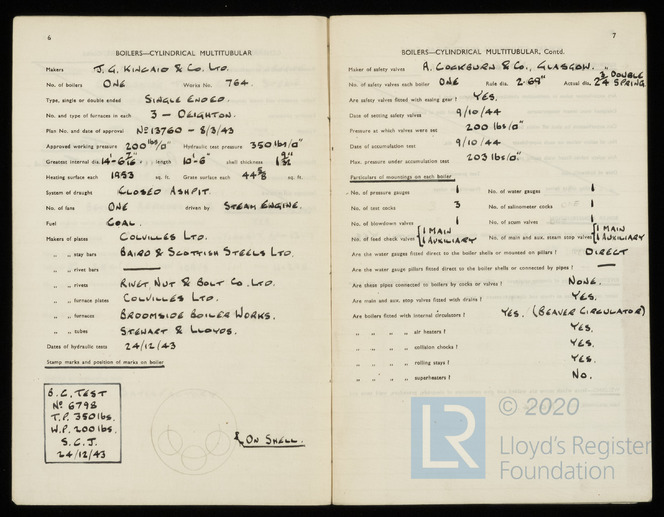 6
BOILERS—CYLINDRICAL MULTITUBULAR
Makers J. G. KINCAID & CO. LTD.
No. of boilers ONE Works No. 764.
Type, single or double ended SINGLE ENDED.
No. and type of furnaces in each 3 - DEIGHTON.
Plan No. and date of approval No 13760 - 8/3/43
Approved working pressure 200 lbs/□" Hydraulic test pressure 350 lbs/□"
Greatest internal dia. length 10'-6" shell thickness
Heating surface each 1953 sq. ft. Grate surface each 44 5/8 sq. ft.
System of draught CLOSED ASHPIT.
No. of fans ONE driven by STEAM ENGINE.
Fuel COAL.
Makers of plates COLVILLES LTD.
„ „ stay bars BAIRD & SCOTTISH STEELS LTD.
„ „ rivet bars ———
„ „ rivets RIVET NUT & BOLT CO. LTD.
„ „ furnace plates COLVILLES LTD.
„ „ furnaces BROOMSIDE BOILER WORKS.
„ „ tubes STEWART & LLOYDS.
Dates of hydraulic tests 24/12/43
Stamp marks and position of marks on boiler
TEST
No 6798
T.P. 350 lbs.
W.P. 200 lbs.
S.C.J.
24/12/43
ON SHELL.
7
BOILERS—CYLINDRICAL MULTITUBULAR, Contd.
Maker of safety valves A. COCKBURN & CO., GLASGOW.
No. of safety valves each boiler ONE Rule dia. 2.69" Actual dia. 2 3/4" DOUBLE SPRING
Are safety valves fitted with easing gear? YES.
Date of setting safety valves 9/10/44
Pressure at which valves were set 200 lbs/□"
Date of accumulation test 9/10/44
Max. pressure under accumulation test 203 lbs/□"
Particulars of mountings on each boiler
No. of pressure gauges 1 No. of water gauges 1
No. of test cocks 3 No. of salinometer cocks 1
No. of blowdown valves 1 No. of scum valves 1
No. of feed check valves {1 MAIN 1 AUXILIARY No. of main and aux. steam stop valves {1 MAIN 1 AUXILIARY
Are the water gauges fitted direct to the boiler shells or mounted on pillars? DIRECT
Are the water gauge pillars fitted direct to the boiler shells or connected by pipes? —
Are these pipes connected to boilers by cocks or valves? NONE.
Are main and aux. stop valves fitted with drains? YES.
Are boilers fitted with internal circulators? YES. (BEAVER CIRCULATOR)
„ „ „ „ air heaters? YES.
„ „ „ „ collision chocks? YES.
„ „ „ „ rolling stays? YES.
„ „ „ „ superheaters? NO.
LR © 2020
Lloyd's Register
Foundation